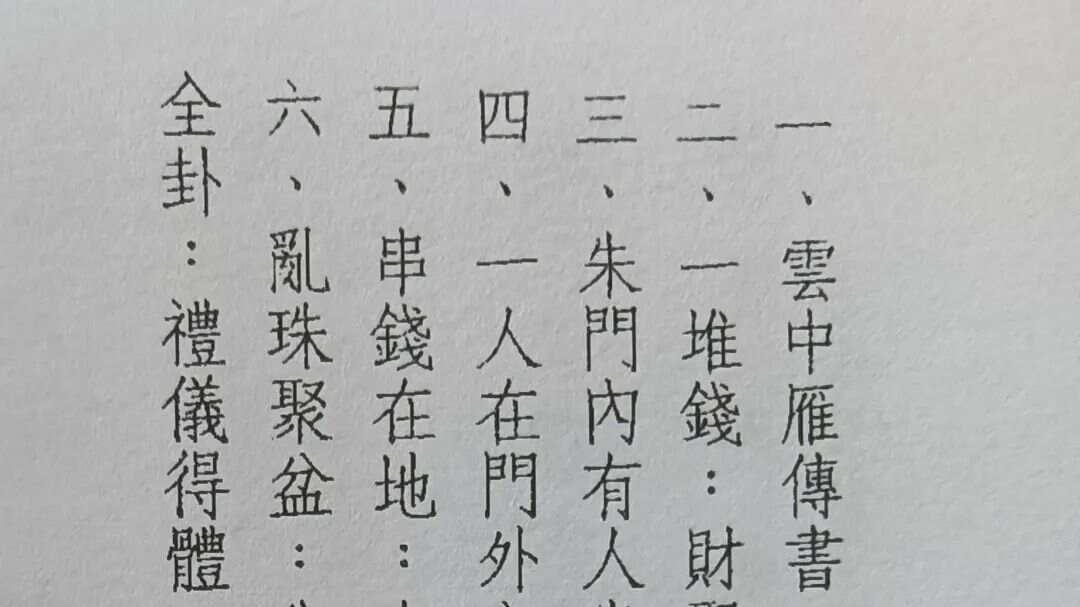 一、雲中雁傳書
二、一堆錢：財
三、朱門內有人
四、一人在門外
五、串錢在地：
六、亂珠聚盆：
全卦：禮儀得體